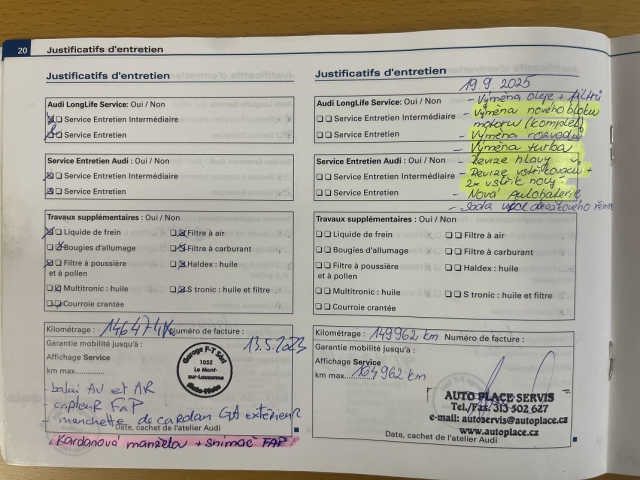 20 Justificatifs d'entretien
Justificatifs d'entretien
Audi LongLife Service: Oui / Non
Service Entretien Intermédiaire
Service Entretien
Service Entretien Audi : Oui / Non
Service Entretien Intermédiaire
Service Entretien
Travaux supplémentaires : Oui / Non
Liquide de frein Filtre à air
Bougies d'allumage Filtre à carburant
Filtre à poussière Haldex : huile
et à pollen
Multitronic : huile S tronic : huile et filtre
Courroie crantée
Kilométrage : 146474 Numéro de facture :
Garantie mobilité jusqu'à : 13.5.2023
Affichage Service
km max
Garage F-T Sàrl
1052
Le Mont-
sur-Lausanne
- balai AV et AR
- capteur FaP
- manchette de cardan GA extérieur
Date, cachet de l'atelier Audi
Kardanová manžeta + snímač FAP
Justificatifs d'entretien
19 9 2025
Audi LongLife Service: Oui / Non
Service Entretien Intermédiaire
Service Entretien
Service Entretien Audi : Oui / Non
Service Entretien Intermédiaire
Service Entretien
- Výměna oleje + filtrů
- Výměna nového bloku
motoru (komplet)
- Výměna rozvodů
- Výměna turba
- Revize hlavy
- Revize vstřikovačů +
2x vstřik nový
- Nová autobaterie
- Sada
Travaux supplémentaires : Oui / Non
Liquide de frein Filtre à air
Bougies d'allumage Filtre à carburant
Filtre à poussière Haldex : huile
et à pollen
Multitronic : huile S tronic : huile et filtre
Courroie crantée
Kilométrage : 149962 km Numéro de facture :
Garantie mobilité jusqu'à :
Affichage Service
km max 164962 km
AUTO PLACE SERVIS
Tel./Fax: 313 502 627
e-mail: autoservis@autoplace.cz
www.autoplace.cz
Date, cachet de l'atelier Audi